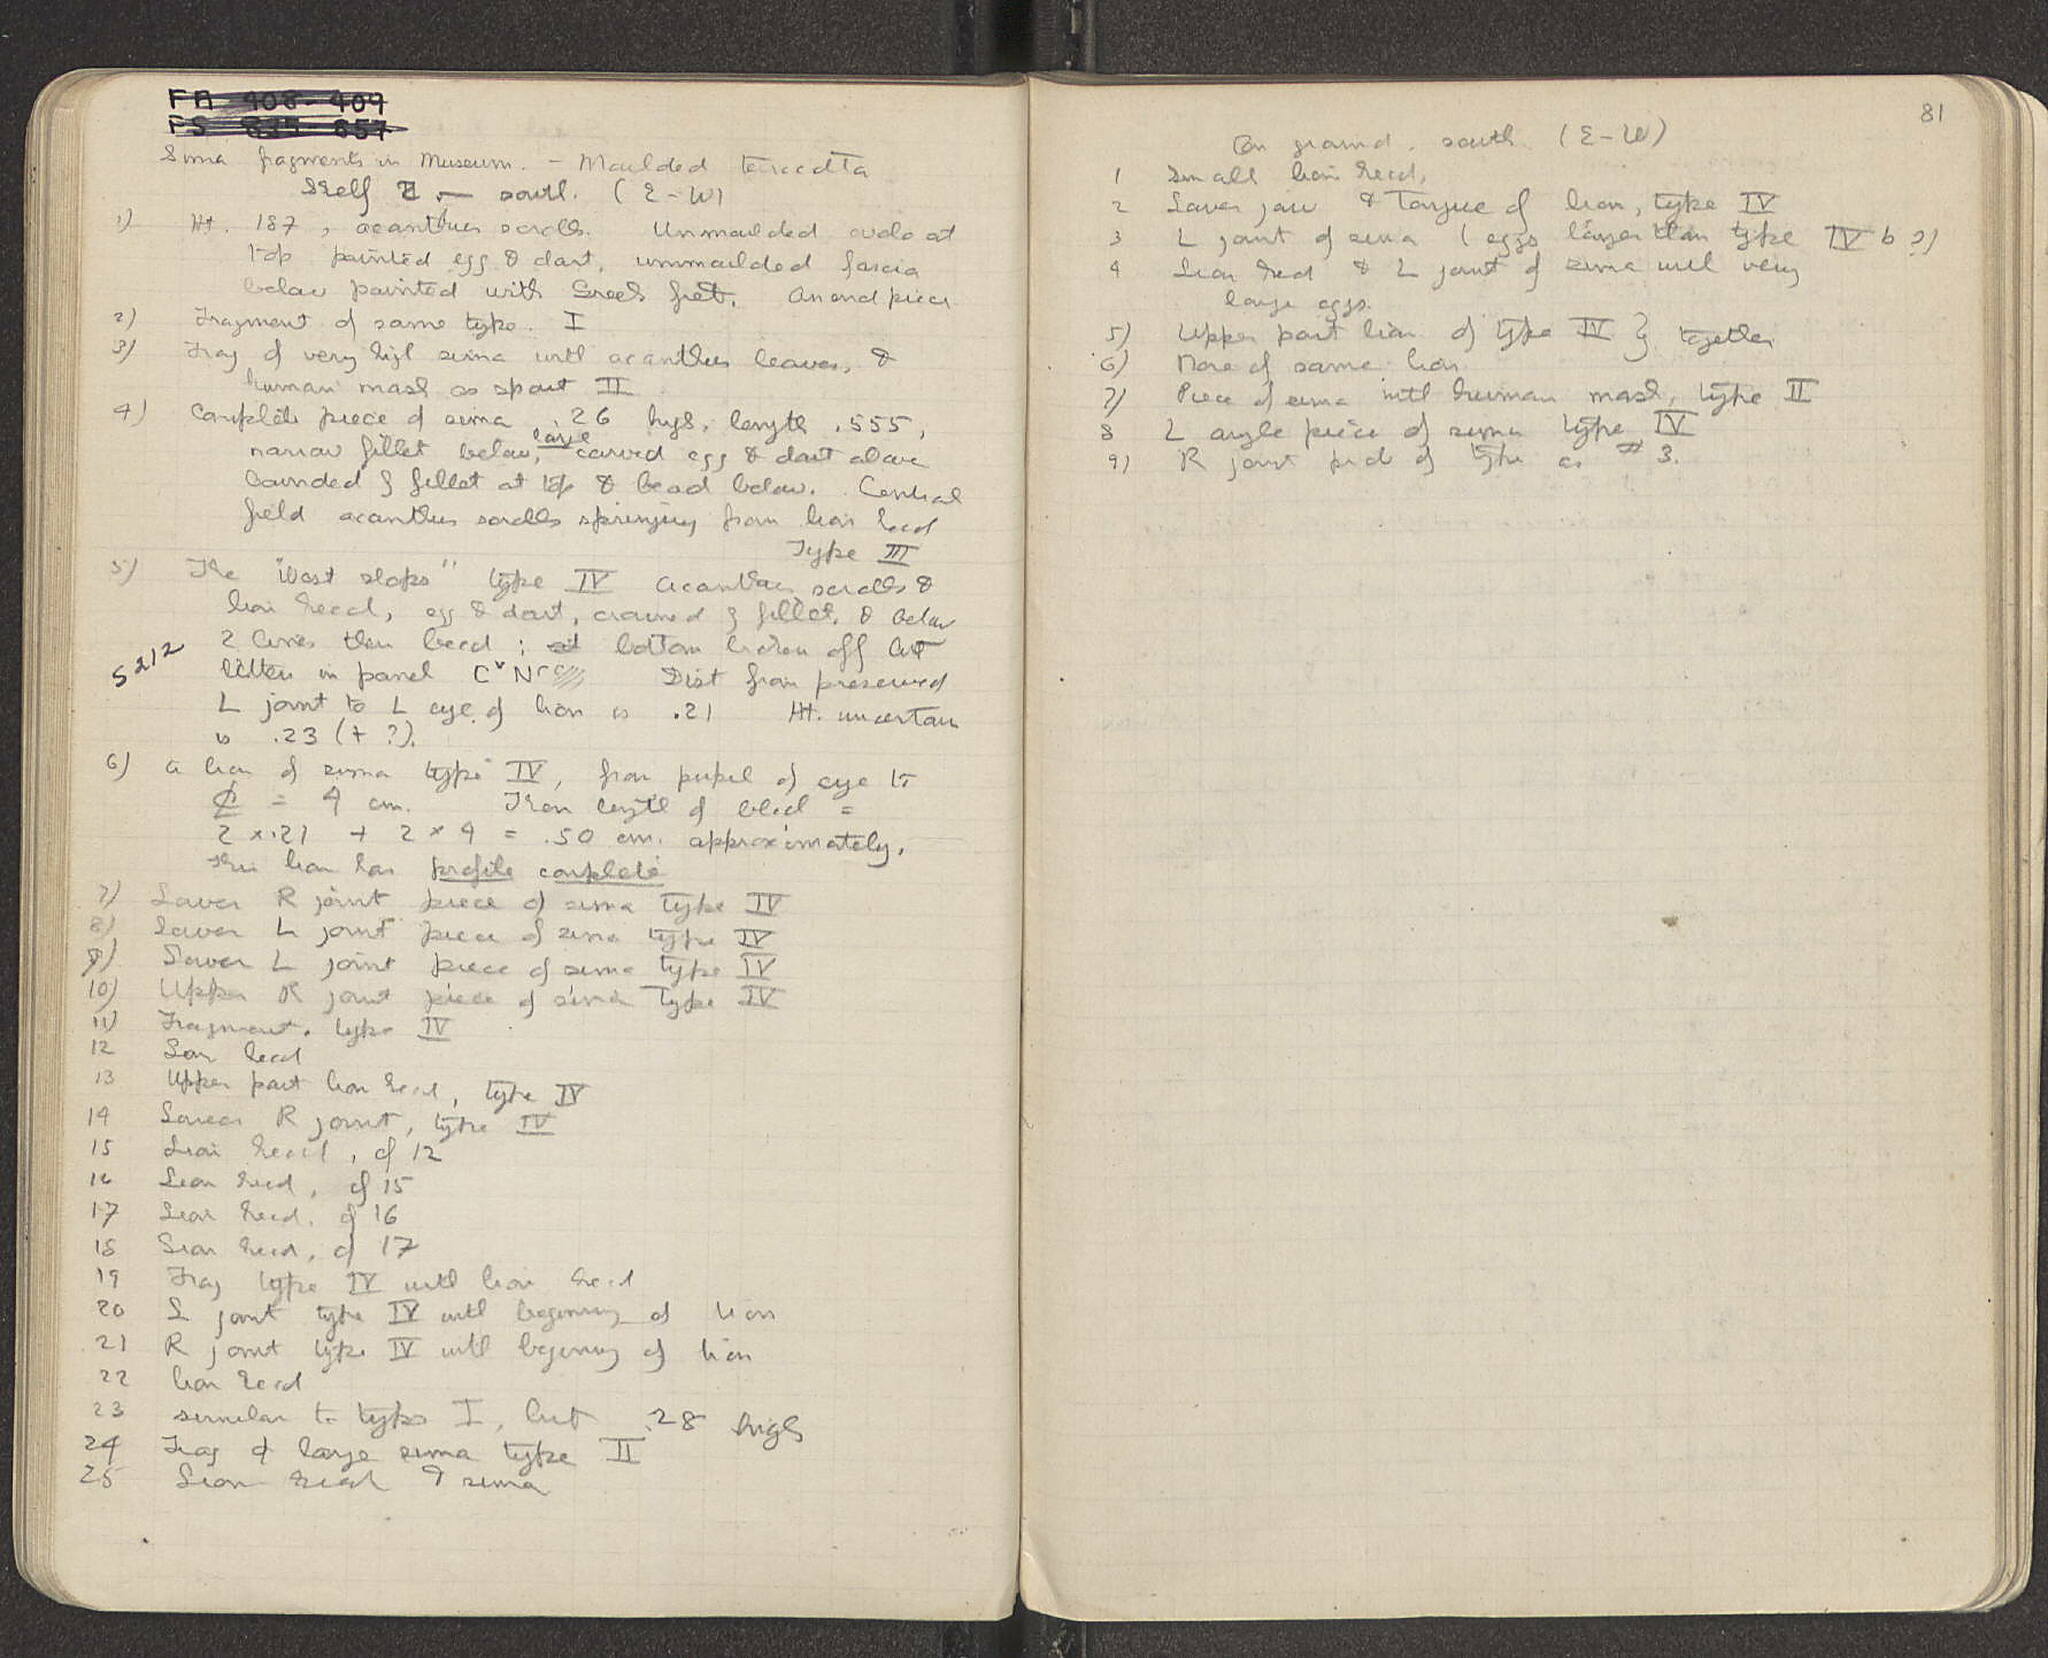 FM 408-409
FS 857
Sima fragments in Museum. - Moulded terracotta
Shelf - south. (E-W)
1) Ht. .187, acanthus scrolls. Unmoulded ovolo at
top painted egg & dart, unmoulded fascia
below painted with Greek fret. An end piece
2) Fragment of same type. I
3) Frag of very high sima with acanthus leaves, &
human mask as spout II
4) Complete piece of sima .26 high, length .555,
narrow fillet below, large carved egg & dart above
crowned by fillet at top & bead below. Central
field acanthus scrolls springing from lion head
Type III
5) The "West slope" type IV acanthus scrolls &
lion head, egg & dart, crowned by fillet, & below
2 lines then bead; bottom broken off but
S212
letters in panel C Ν Dist from preserved
L joint to L eye of lion is .21 Ht. uncertain
is .23 (+ ?).
6) A lion of sima type IV, from pupil of eye to
℄ = 4 cm. Then length of block =
2 x .21 + 2 x 4 = .50 cm. approximately.
This lion has profile complete
7) Lower R joint piece of sima type IV
8) Lower L joint piece of sima type IV
9) Lower L joint piece of sima type IV
10) Upper R joint piece of sima type IV
11) Fragment, type IV
12 Lion head
13 Upper part lion head, type IV
14 Lower R joint, type IV
15 Lion head, cf 12
16 Lion head, cf 15
17 Lion head, cf 16
18 Lion head, cf 17
19 Frag type IV with lion head
20 L joint type IV with beginning of lion
21 R joint type IV with beginning of lion
22 lion head
23 similar to type I, but .28 high
24 Frag of large sima type II
25 Lion head & sima
81
On ground. south (E-W)
1 Small lion head.
2 Lower jaw & tongue of lion, type IV
3 L joint of sima (eggs larger than type IV b?)
4 Lion head & L joint of sima with very
large eggs.
5) Upper part lion of type IV } together
6) More of same lion
7) Piece of sima with human mask, type II
8 L angle piece of sima type IV
9) R joint of type as # 3.